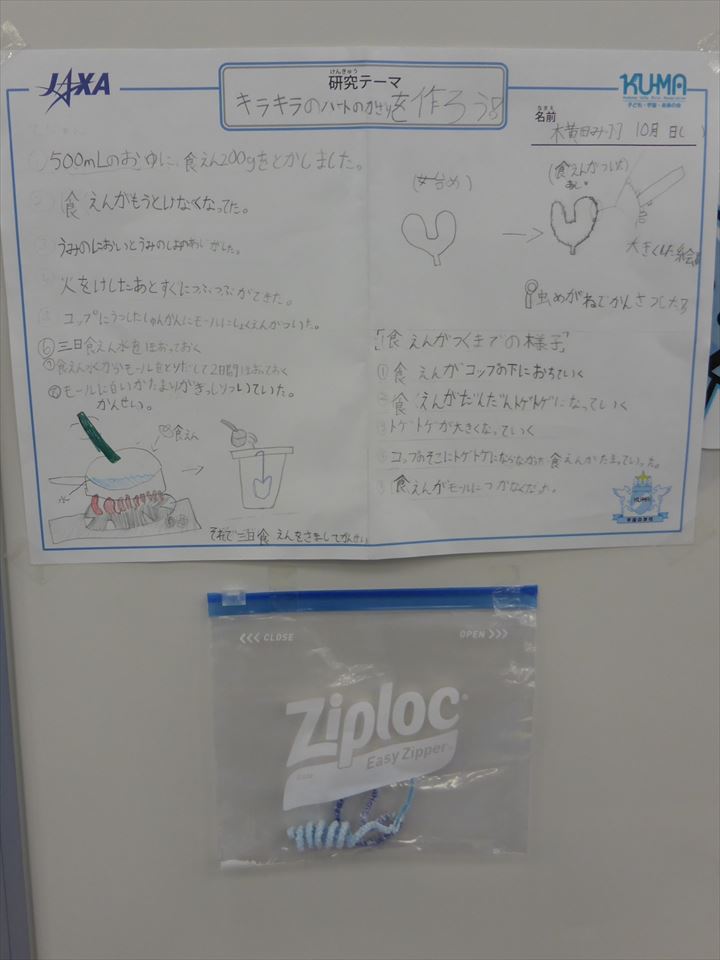 JAXA
けんきゅう
研究テーマ
キラキラのハートのかざりを作ろう
KU-MA
子ども・宇宙・未来の会
なまえ
名前
10月
① 500mLのおゆに、食えん200gをとかしました。
② 食えんがもうとけなくなってた。
③ うみのにおいとうみの
④ 火をけしたあとすぐにつぶつぶができた。
⑤ コップにうつしたしゅんかんにモールにしょくえんがついた。
⑥ 三日食えん水をほおっておく
⑦ 食えん水からモールをとりだして2日間ほおっておく
⑧ モールに白いかたまりがぎっしりついていた。
かんせい。
食えん
それで三日食えんをさましてかんせい
(食えんがついた)
大きくした絵
虫めがねでかんさつしたら
「食えんがつくまでの様子」
① 食えんがコップの下におちていく
② 食えんがだんだんトゲトゲになっていく
③ トゲトゲが大きくなっていく
④ コップのそこにトゲトゲにならなかった食えんがたまっていった。
⑤ 食えんがモールにつかなくなった。
KU-MA
宇宙の学校
<<< CLOSE
OPEN >>>
Ziploc
Easy Zipper